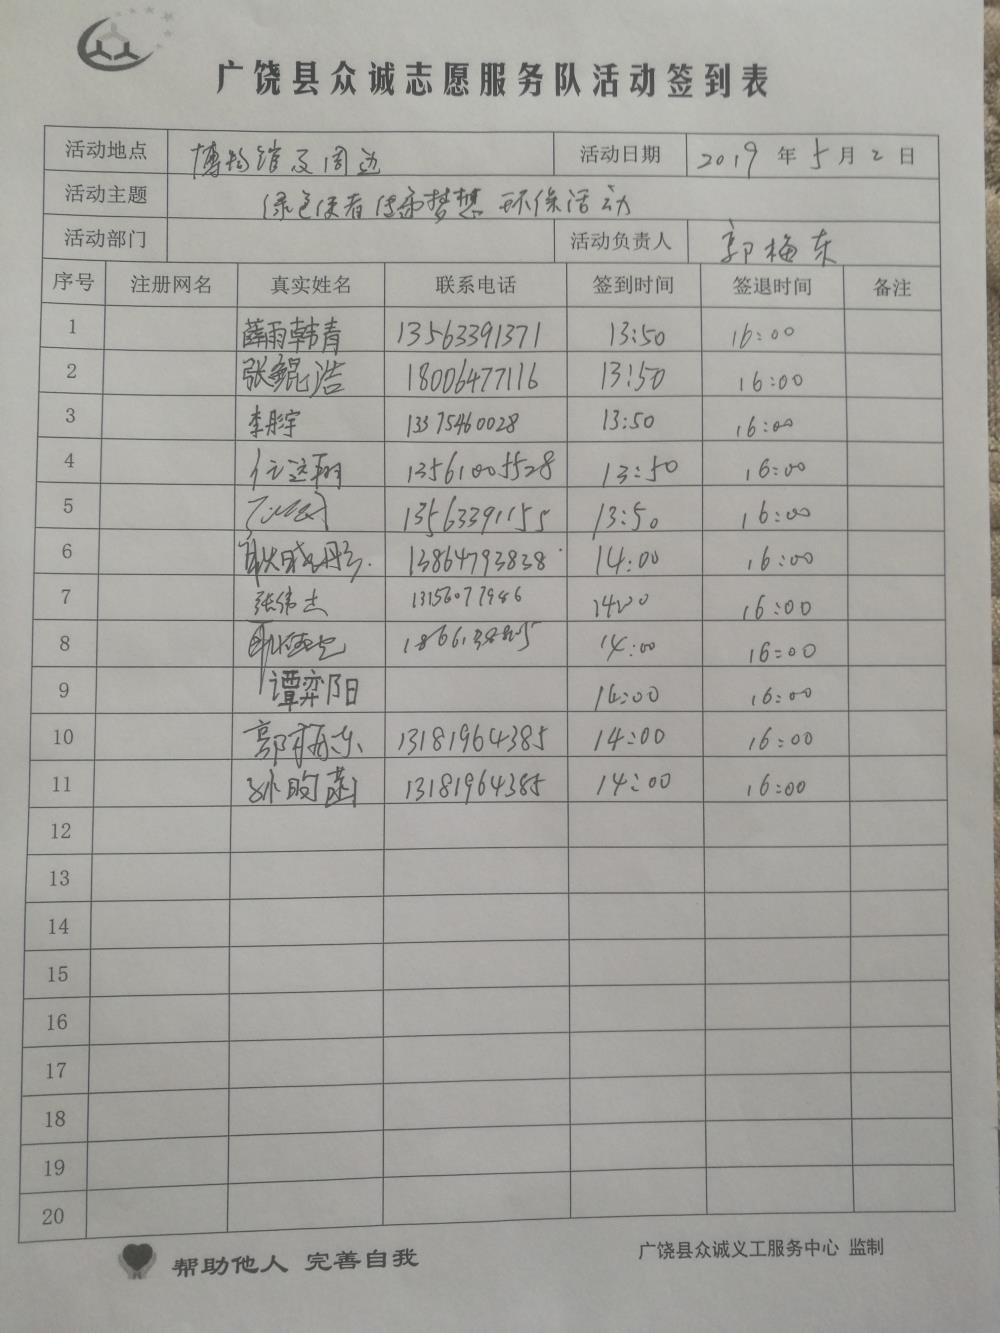 广饶县众诚志愿服务队活动签到表
活动地点 博物馆及周边 活动日期 2019年5月2日
活动主题 绿色使者传递梦想 环保活动
活动部门 活动负责人 郭梅东
序号 注册网名 真实姓名 联系电话 签到时间 签退时间 备注
1 薛雨韩青 13563391371 13:50 16:00
2 张鲲浩 18006477116 13:50 16:00
3 李彤宇 13375460028 13:50 16:00
4 13561005528 13:50 16:00
5 13563391155 13:50 16:00
6 13864793838 14:00 16:00
7 张伟杰 13156077986 14:20 16:00
8 14:00 16:00
9 谭弈阳 14:00 16:00
10 郭梅东 13181964385 14:00 16:00
11 13181964385 14:00 16:00
12
13
14
15
16
17
18
19
20
帮助他人 完善自我
广饶县众诚义工服务中心 监制